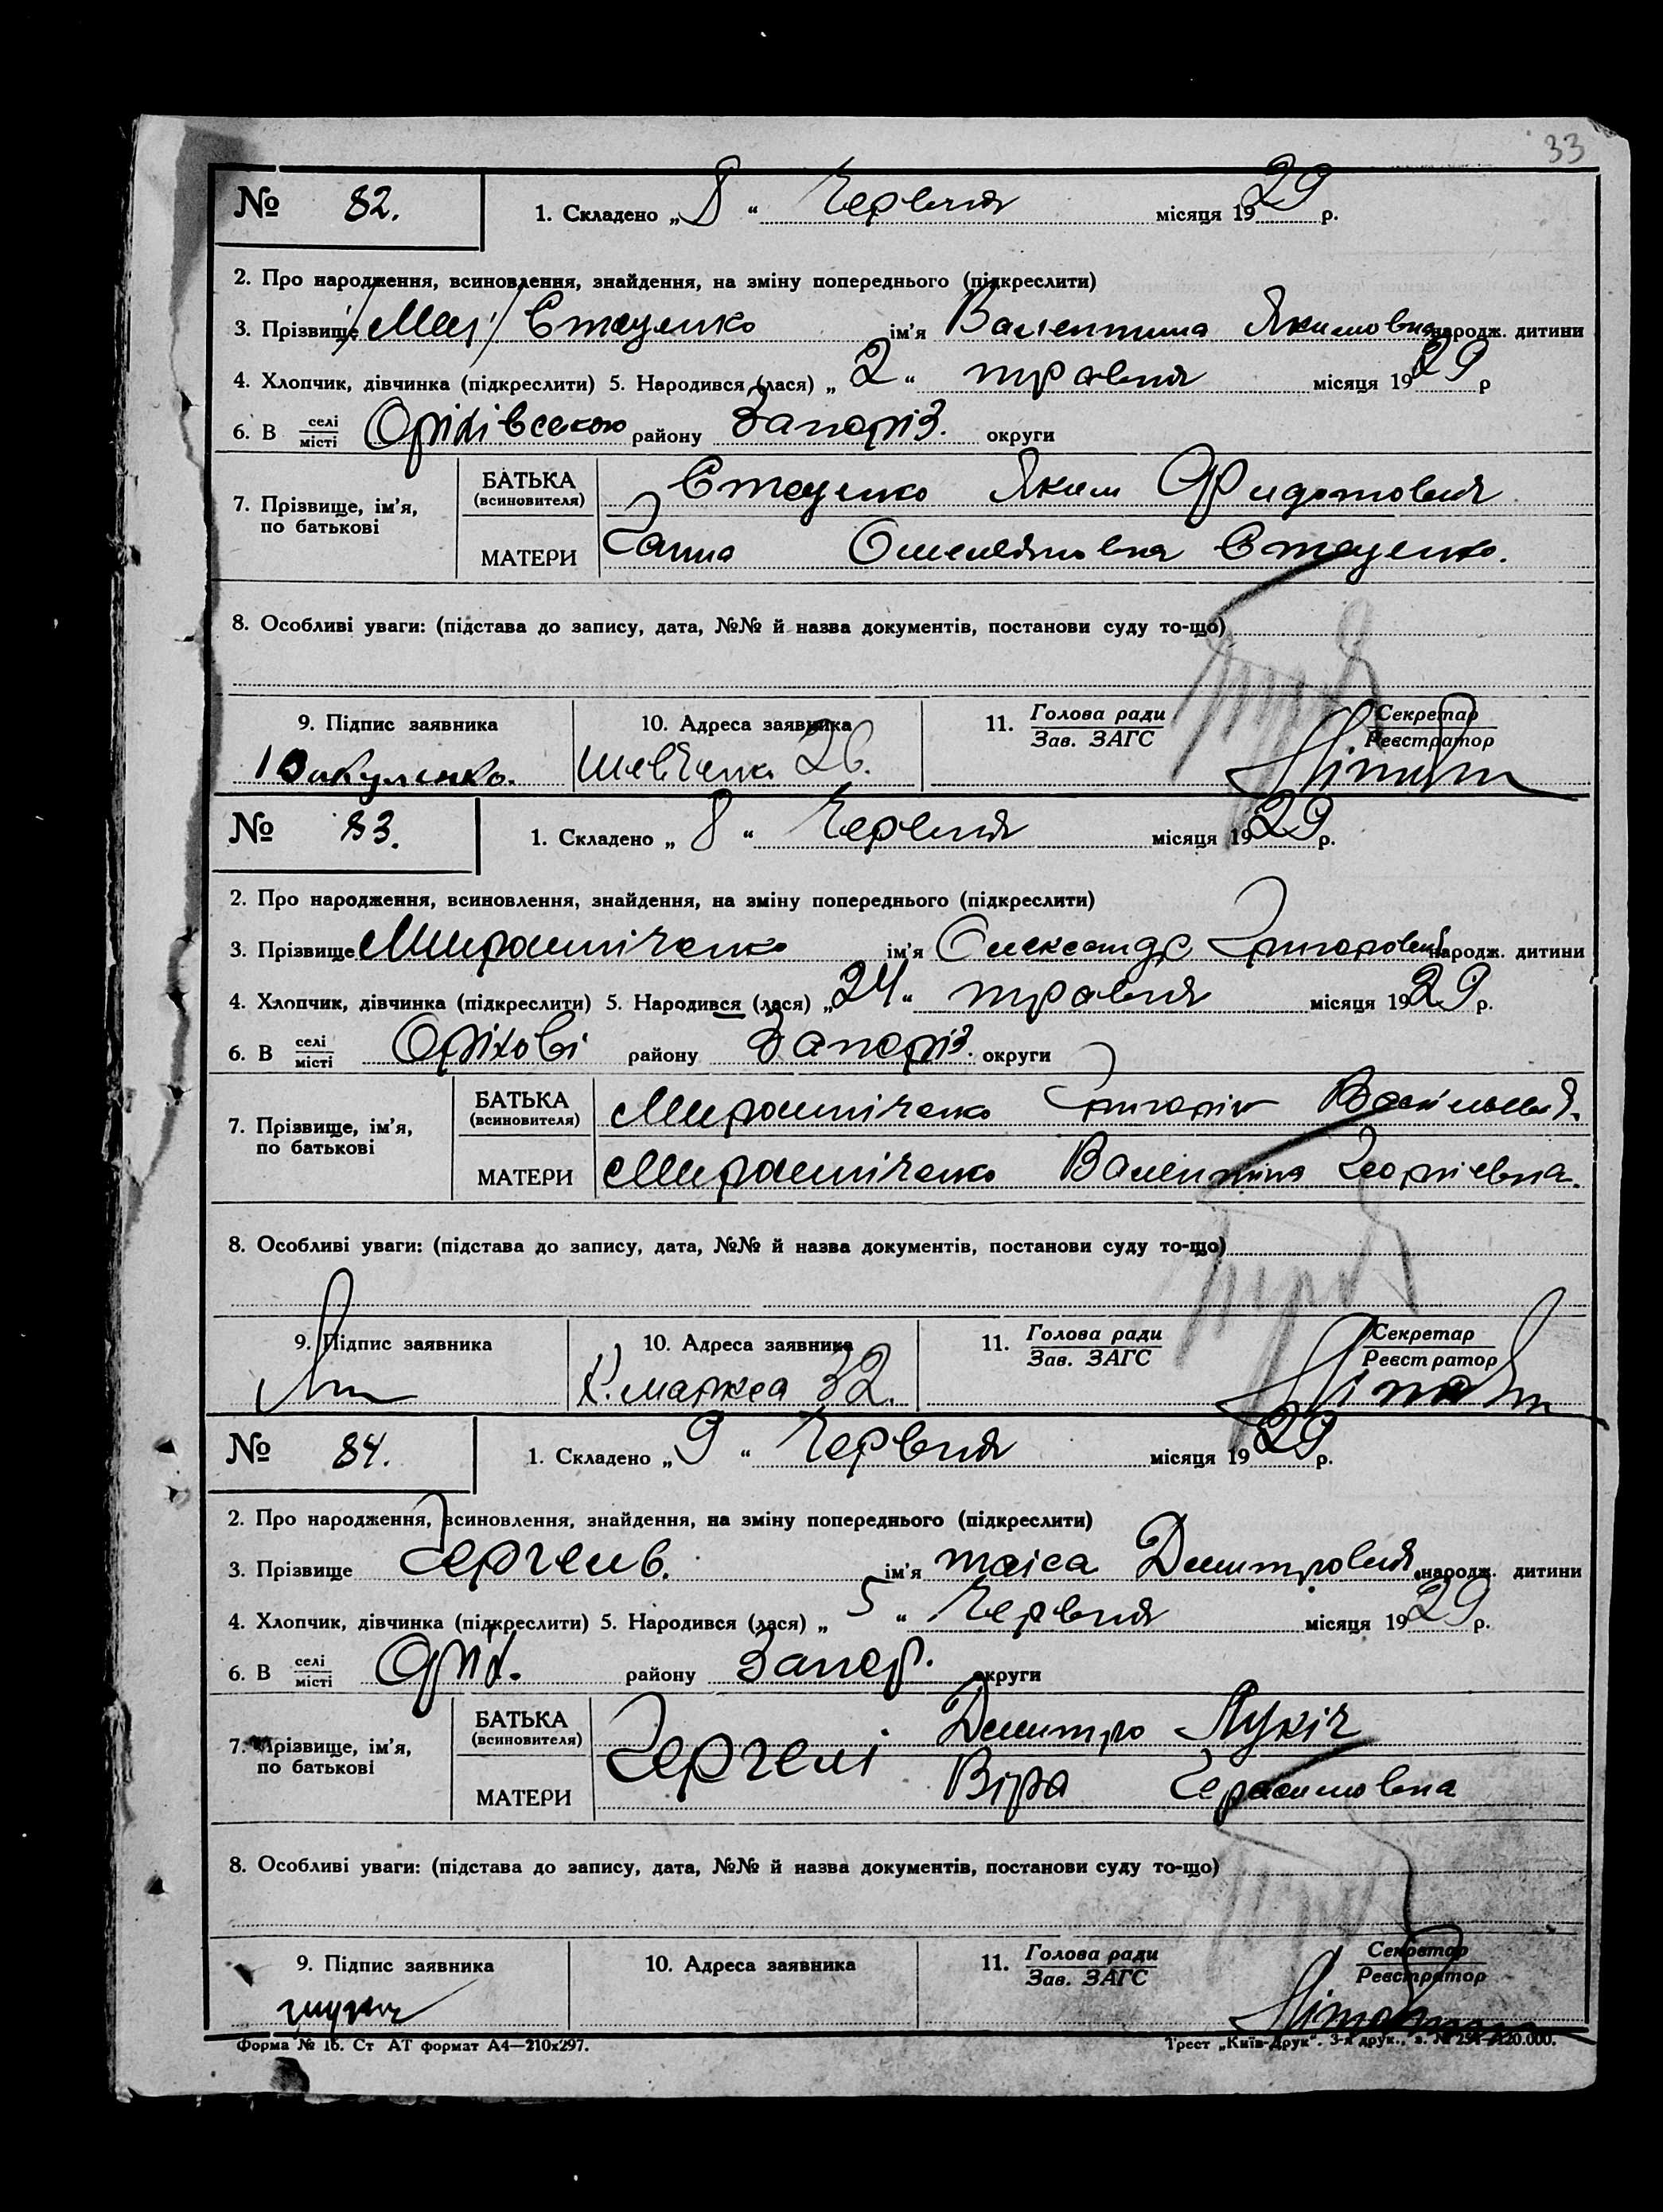 33
№ 82. 1. Складено „8“ Червня місяця 1929 р.
2. Про народження, всиновлення, знайдення, на зміну попереднього (підкреслити)
3. Прізвище Стаценко ім'я Валентина Якимовна народж. дитини
4. Хлопчик, дівчинка (підкреслити) 5. Народився (лася) „2“ травня місяця 1929 р
6. В селі/місті Оріхівського району Запоріз. округи
7. Прізвище, ім'я, по батькові БАТЬКА (всиновителя) Стаценко Яким Фидотович
МАТЕРИ Ганна Омеляновна Стаценко.
8. Особливі уваги: (підстава до запису, дата, №№ й назва документів, постанови суду то-що)
9. Підпис заявника 10. Адреса заявника 11. Голова ради/Зав. ЗАГС Секретар/Реєстратор
Шевченка 26.
№ 83. 1. Складено „8“ Червня місяця 1929 р.
2. Про народження, всиновлення, знайдення, на зміну попереднього (підкреслити)
3. Прізвище Мирошніченко ім'я Олександр Григорович народж. дитини
4. Хлопчик, дівчинка (підкреслити) 5. Народився (лася) „24“ травня місяця 1929 р.
6. В селі/місті Оріхові району Запоріз. округи
7. Прізвище, ім'я, по батькові БАТЬКА (всиновителя) Мирошніченко Григорій
МАТЕРИ Мирошніченко Валентина Георгіевна.
8. Особливі уваги: (підстава до запису, дата, №№ й назва документів, постанови суду то-що)
9. Підпис заявника 10. Адреса заявника 11. Голова ради/Зав. ЗАГС Секретар/Реєстратор
К. Маркса 32.
№ 84. 1. Складено „9“ Червня місяця 1929 р.
2. Про народження, всиновлення, знайдення, на зміну попереднього (підкреслити)
3. Прізвище ім'я таіса народж. дитини
4. Хлопчик, дівчинка (підкреслити) 5. Народився (лася) „5“ Червня місяця 1929 р.
6. В селі/місті Оріх. району Запор. округи
7. Прізвище, ім'я, по батькові БАТЬКА (всиновителя) Дмитро Лукіч
МАТЕРИ Віра Герасимовна
8. Особливі уваги: (підстава до запису, дата, №№ й назва документів, постанови суду то-що)
9. Підпис заявника 10. Адреса заявника 11. Голова ради/Зав. ЗАГС Секретар/Реєстратор
Форма № 16. Ст АТ формат А4—210х297. Трест „Київ-Друк“. 3-я друк.,